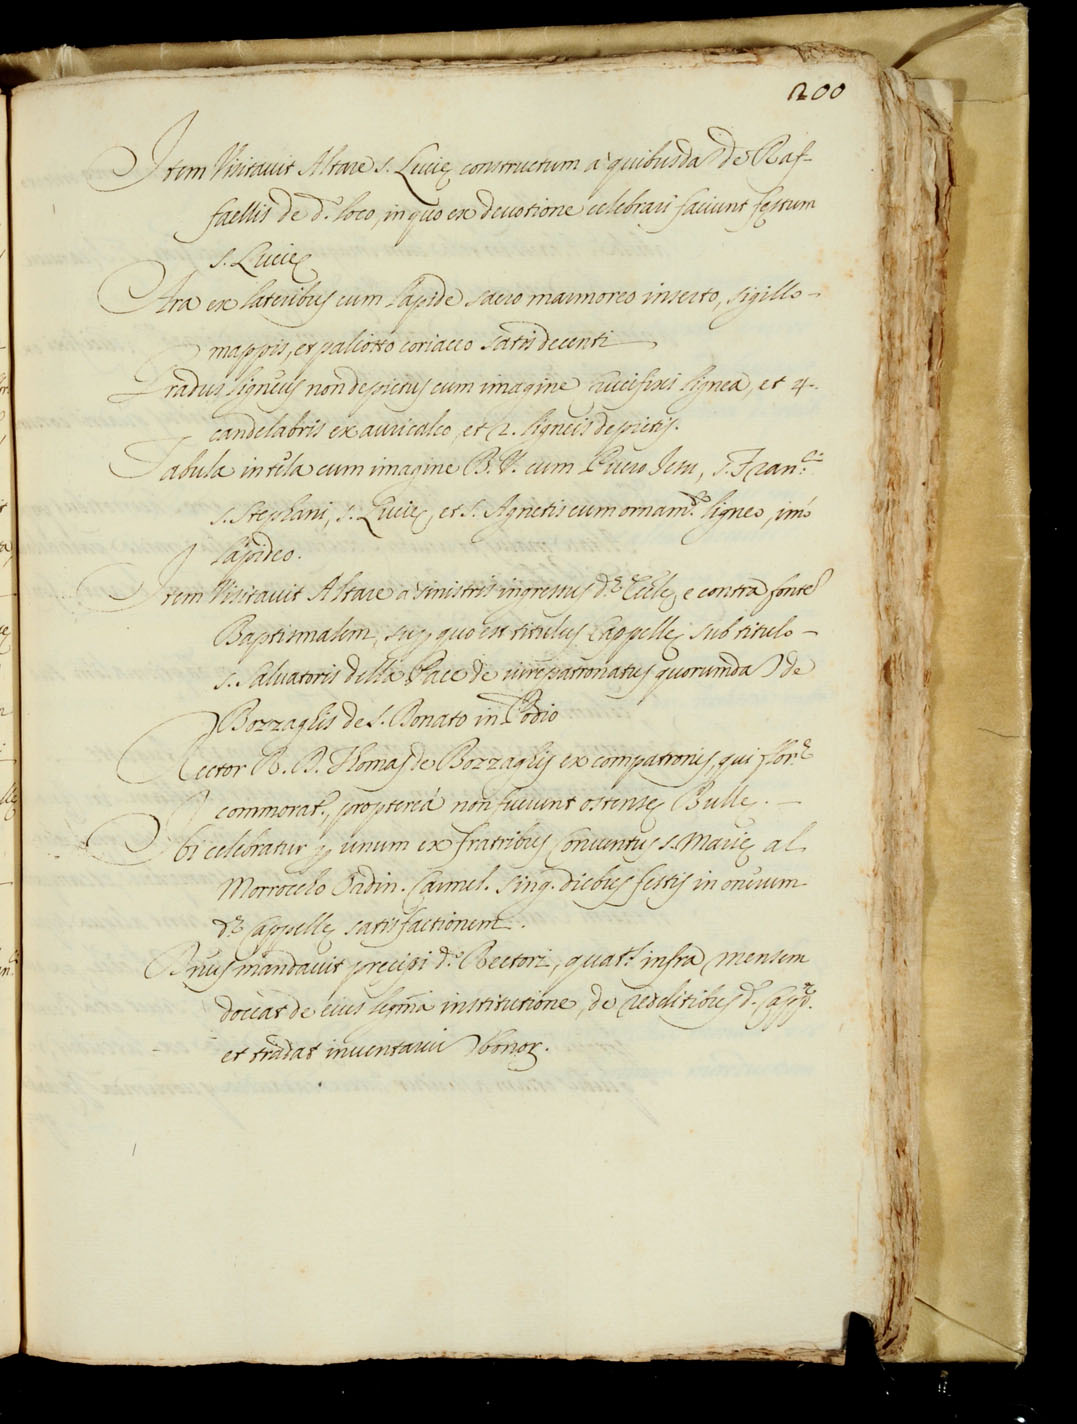 200
Item Visitavit Altare s. Lucię constructum à quibusdā de Raf-
faellis de d.º loco, in quo ex devotione celebrari faciunt festum
s. Lucię
Ara ex lateribus cum lapide sacro marmoreo inserto, sigillo -
mappis, et paliotto coriaceo satis decenti
Gradus ligneus non depictus cum imagine Crucifixi lignea, et 4.
candelabris ex auricalco, et 2. ligneis depictis.
Tabula in tela cum imagine B. V. cum Puero Jesu, s. Fran.ci
s. Stephani, s. Lucię, et s. Agnetis cum ornam.to ligneo, imò
lapideo.
Item Visitavit Altare à sinistris ingressus d.ę Eccl.ę e contra fonte
Baptismalem, sup quo est titulus Cappellę sub titulo -
s. Salvatoris della Pace de iurepatronatus quorumdā de
Bozzaglis de s. Donato in Podio
Rector R. D. Thomas de Bozzaglis ex compatronis, qui Flor.ę
commorat., proptereà non fuerunt ostensę Bullę. -
Ibi celebratur p unum ex fratribus Conventus s. Marię al
Morrocelo Ordin. Carmel. sing. diebus festis in onerum
d.ę Cappellę satisfactionem.
Dnus mandavit precipi d.º Rectori, quat. infra mensem
doceat de eius legma institutione, de redditibus d. Capp.ę
et tradat inventariū bonor.